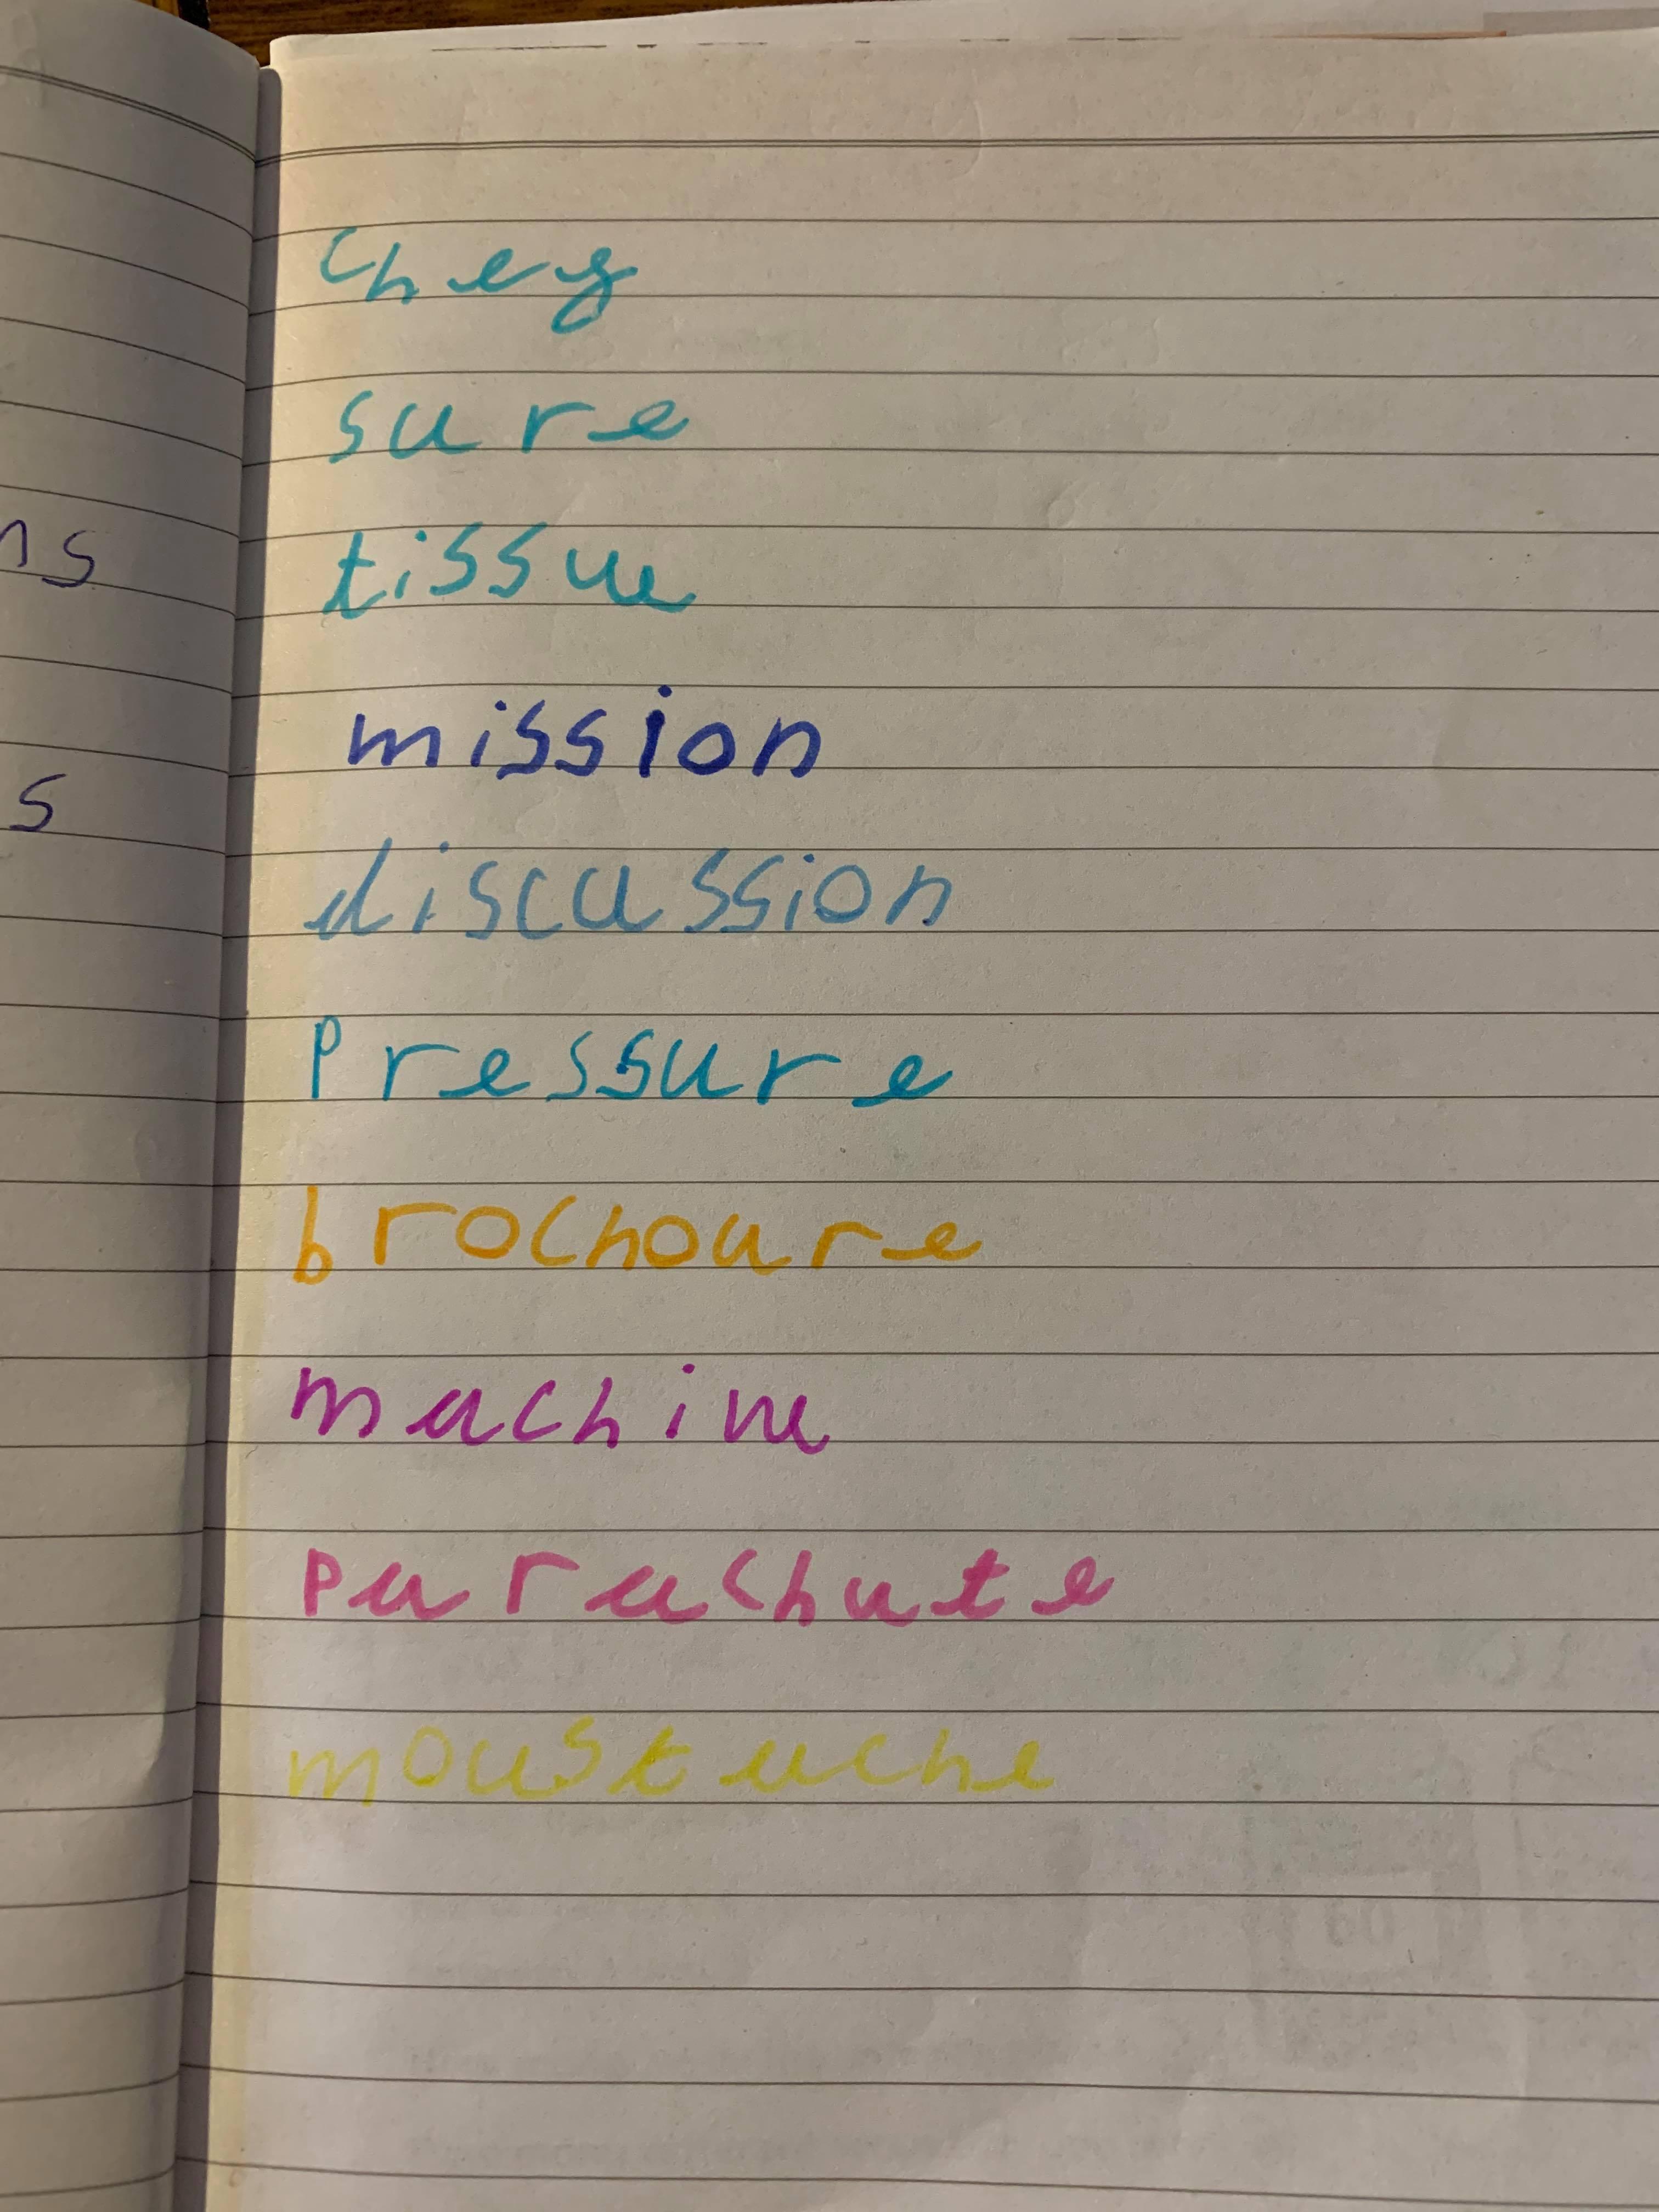 chef
sure
tissue
mission
discussion
pressure
brochoure
machine
parachute
moustache
ns
s